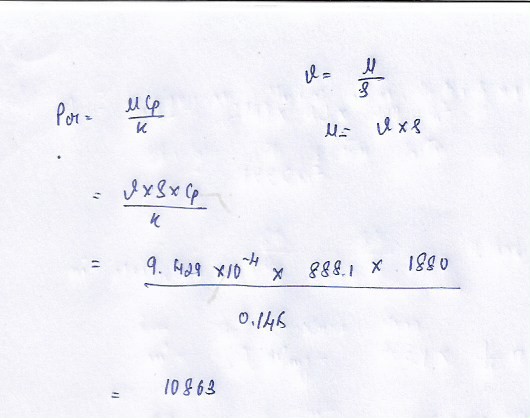 ν = μ/ρ
Pr = μCp/k
μ = ν×ρ
= ν×ρ×Cp/k
= 9.429 ×10⁻⁴ × 888.1 × 1880/0.145
= 10863